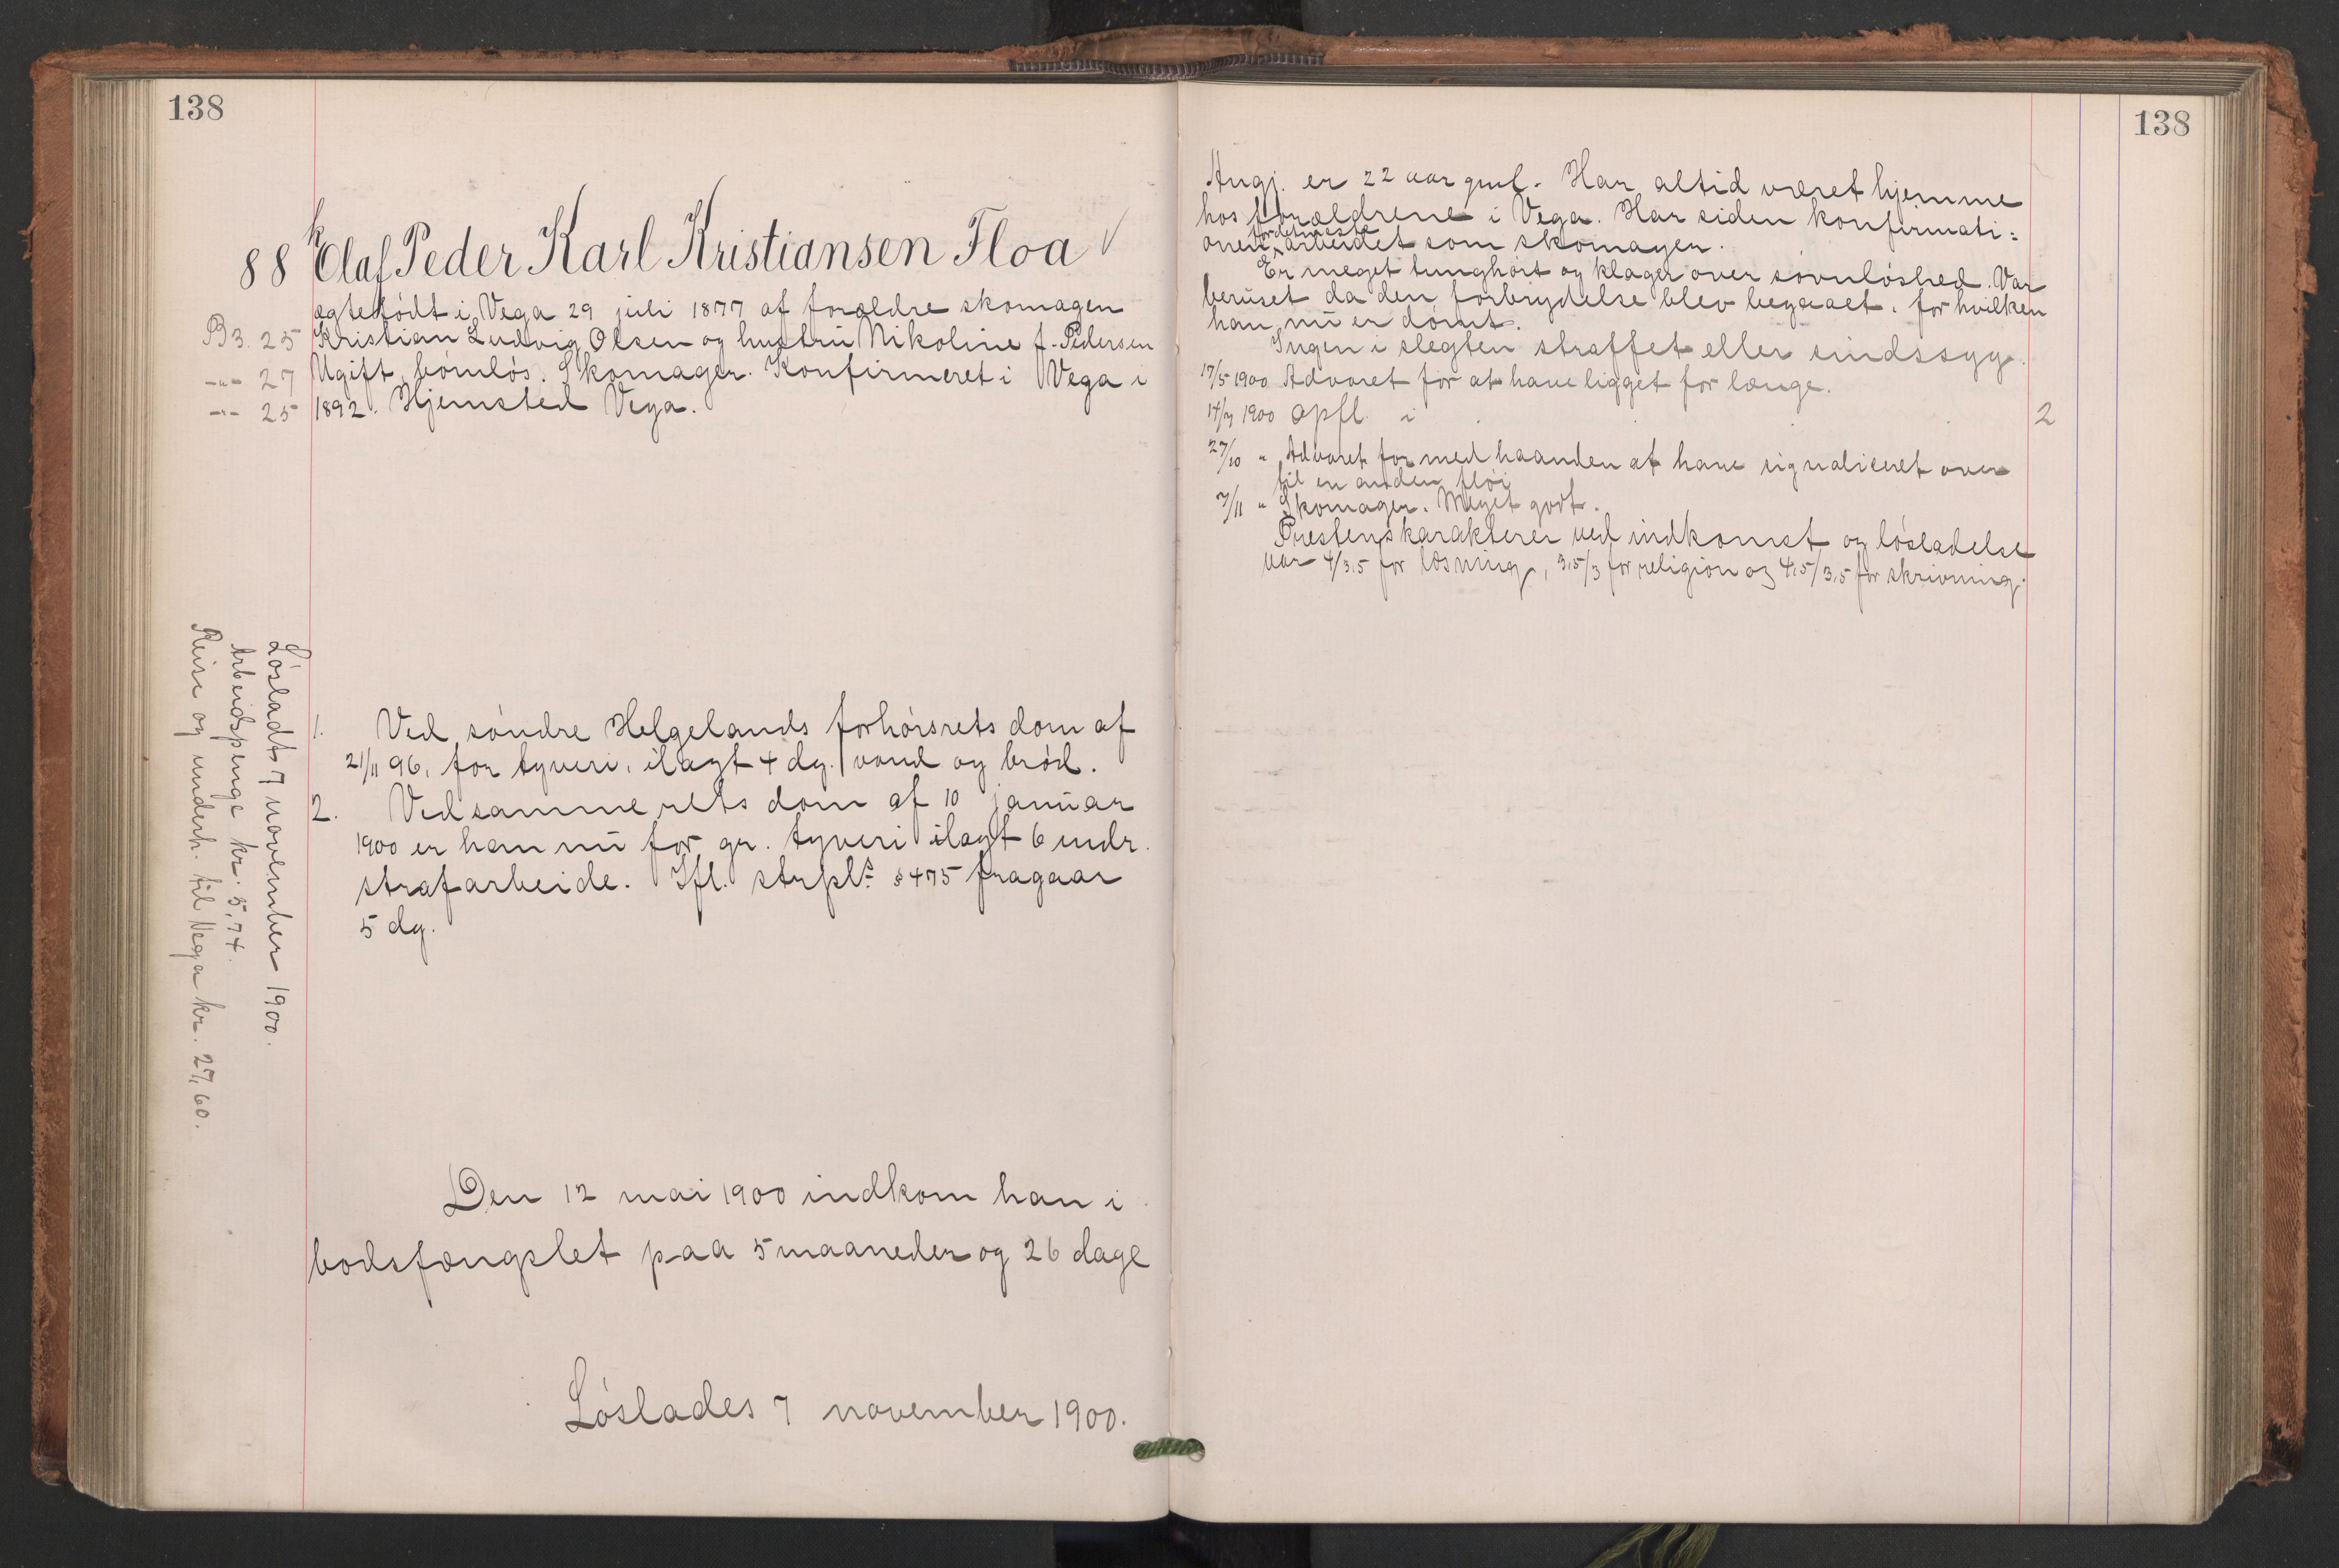 138
88 k Olaf Peder Karl Kristiansen Floa √
ægtefødt i Vega 29 juli 1877 af forældre skomager
B3. 25 Kristian Ludvig Olsen og hustru Nikoline f. Pedersen
-"- 27 Ugift, børnløs. Skomager. Konfirmeret i Vega i
-"- 25 1892. Hjemsted Vega.
Løsladt 7 november 1900.
Arbeidspenge kr. 5,74.
Reise og underh. til Vega kr. 27,60.
1. Ved søndre Helgelands forhørsrets dom af
21/11 96, for tyveri, ilagt 4 dg. vand og brød.
2. Ved samme rets dom af 10 januar
1900 er han nu for gr. tyveri ilagt 6 mdr.
strafarbeide. Ifl. strpls. § 475 fragaar
5 dg.
Den 12 mai 1900 indkom han i
bodsfængslet paa 5 maaneder og 26 dage
Løslades 7 november 1900.
138
Angj. er 22 aar gml. Har altid været hjemme
hos forældrene i Vega. Har siden konfirmati=
onen fordetmeste arbeidet som skomager.
Er meget tunghørt og klager over søvnløshed. Var
beruset da den forbrydelse blev begaaet, for hvilken
han nu er dømt.
Ingen i slegten straffet eller sindssyg.
17/5 1900 Advaret for at have ligget for længe.
14/7 1900 opfl. i 2
27/10 " Advaret for med haanden at have signaliceret over
til en anden fløi
7/11 " Skomager. Meget godt.
Prestens karakterer ved indkomst og løsladelse
var 4/3,5 for læsning, 3,5/3 for religion og 4,5/3,5 for skrivning.